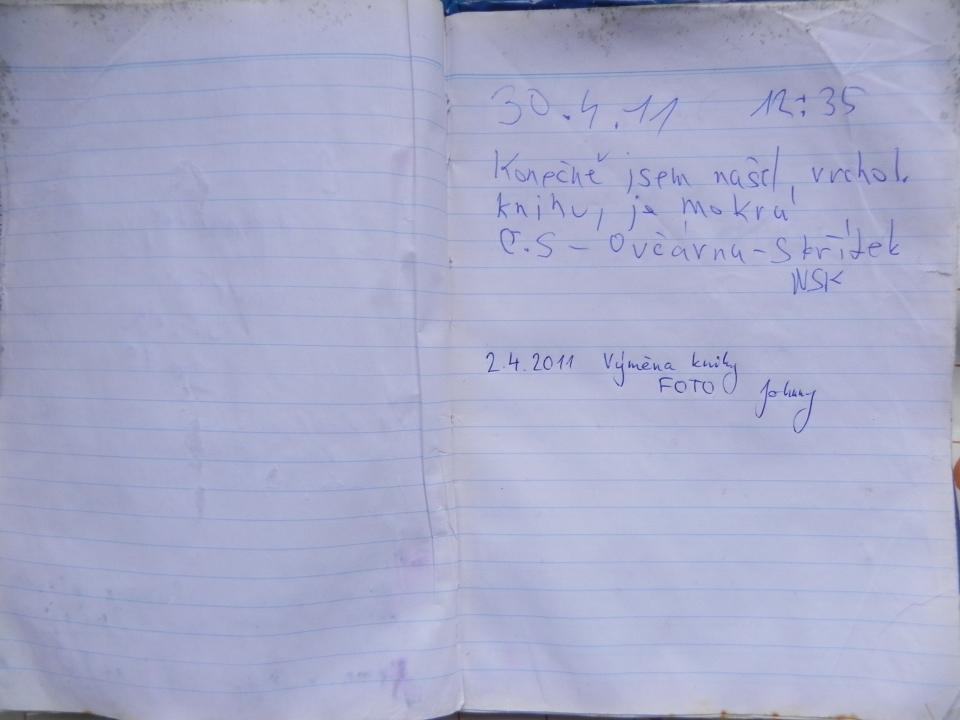 30.4.11 12:35
Konečně jsem našel, vrchol.
knihu, je mokrá
Č.S - Ovčárna - Skřítek
NSK
2.4.2011 Výměna knihy
FOTO Johnny